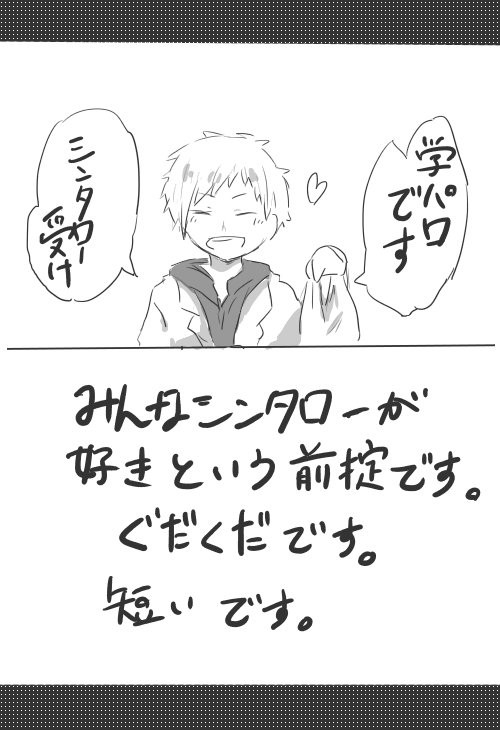 学パロ
です
シンタロー
受け
みんなシンタローが
好きという前掟です。
ぐだぐだです。
短いです。